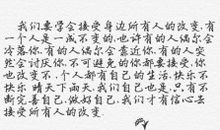 我们要学会接受身边所有人的改变.有
一个人是一成不变的.也许有的人偶尔会
冷落你.有的人偶尔会靠近你.有的人突
然会讨厌你.不可避免的你都要接受.你
也改变不.个人都有自己的生活.快乐不
快乐.晴天下雨天.我们自己也是.只有不
断完善自己.做好自己.我们才有信心去
接受所有人的改变.